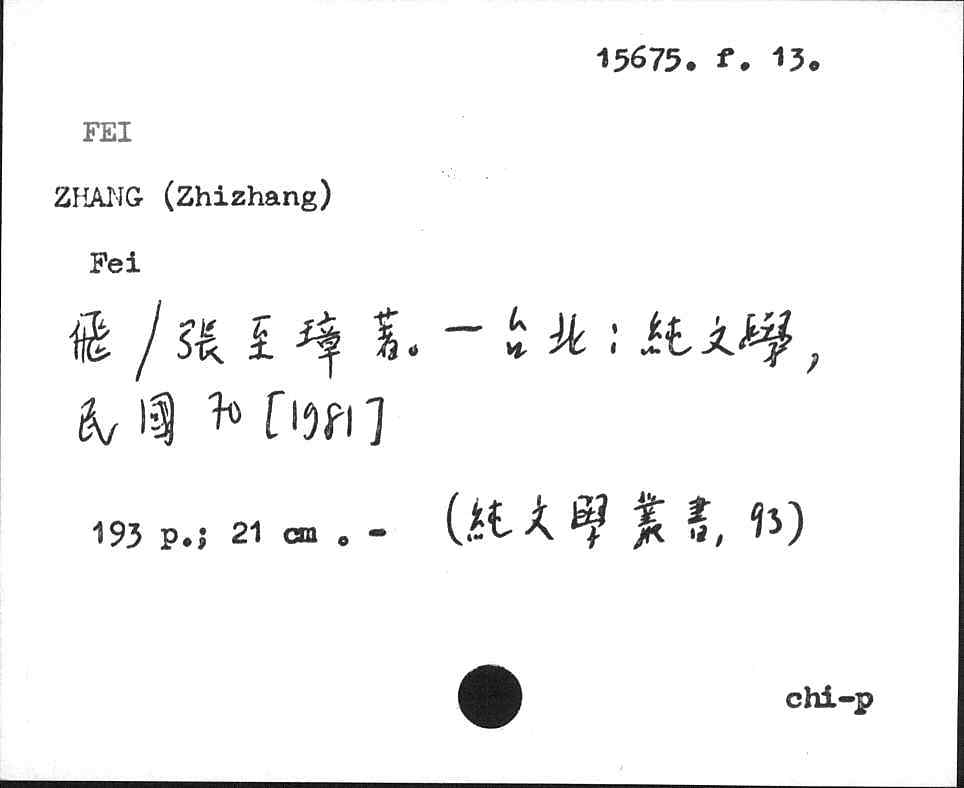 15675. f. 13.
FEI
ZHANG (Zhizhang)
Fei
飛 / 張至璋著。— 台北 : 純文學,
民國70 [1981]
193 p.; 21 cm . - (純文學叢書, 93)
chi-p